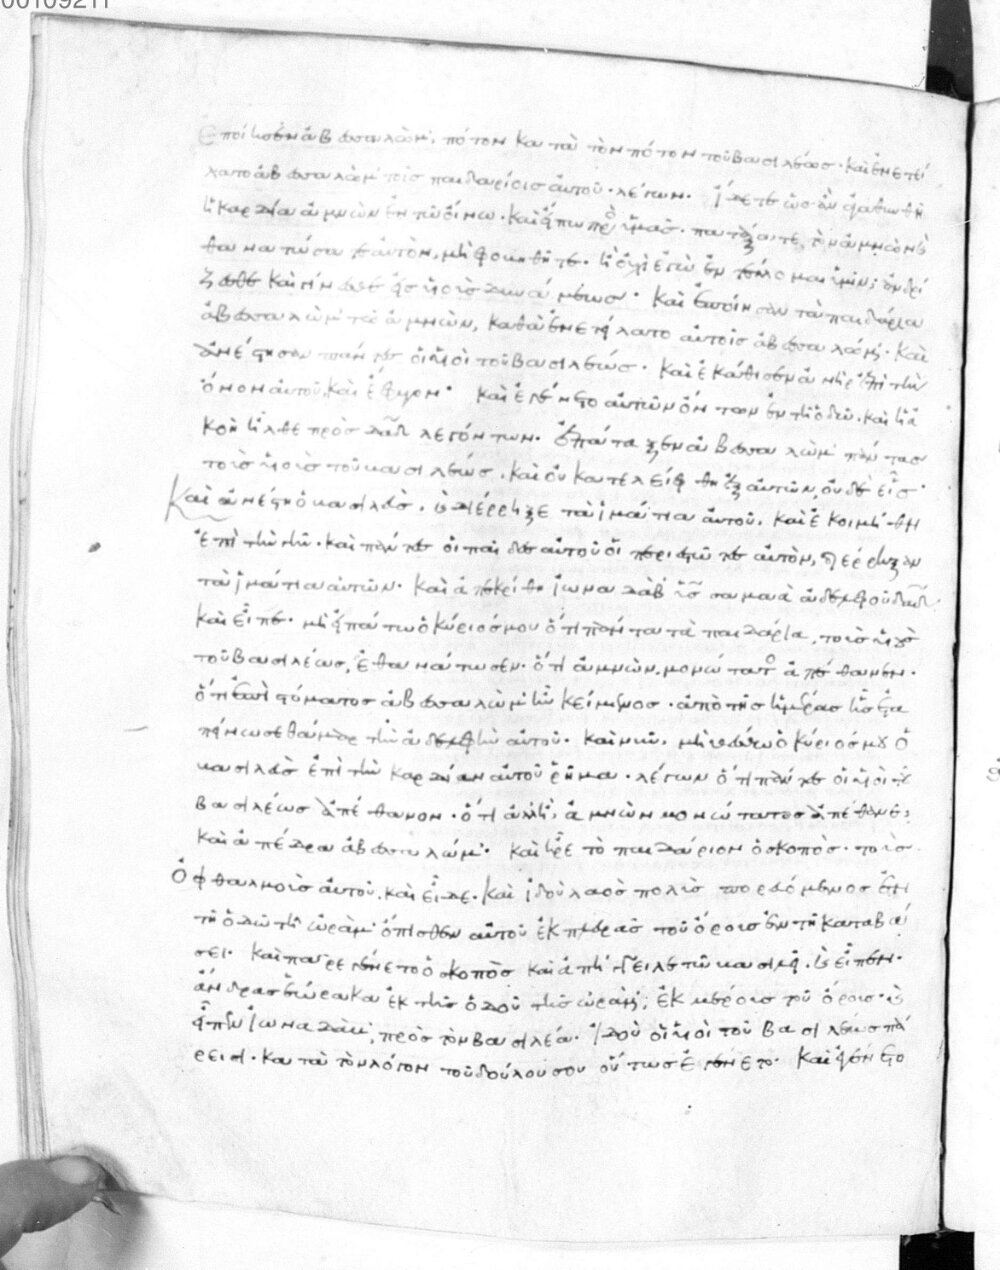 00109211
ἐποίησεν ἀβεσσαλὼμ πότον κατὰ τὸν πότον τοῦ βασιλέως· καὶ ἐνετεί
λατο ἀβεσσαλὼμ τοῖς παιδαρίοις αὐτοῦ λέγων· ἴδετε ὡς ἂν ἀγαθυνθῆ
ἡ καρδία ἀμνὼν ἐν τῶ οἴνω· καὶ εἴπω πρὸς ὑμᾶς· πατάξατε τὸν ἀμνὼν καὶ
θανατώσατε αὐτὸν, μὴ φοβηθῆτε· ἢ οὐχὶ ἐγὼ ἐντέλλομαι ὑμῖν; ἀνδρί
ζεσθε καὶ γίνεσθε εἰς υἱοὺς δυνάμεως· καὶ ἐποίησαν τὰ παιδάρια
ἀβεσσαλὼμ τῶ ἀμνὼν, καθὰ ἐνετείλατο αὐτοῖς ἀβεσσαλώμ· καὶ
ἀνέστησαν πάντες οἱ υἱοὶ τοῦ βασιλέως· καὶ ἐκάθισεν ἀνὴρ ἐπὶ τὴν
ἡμίονον αὐτοῦ, καὶ ἔφυγον· καὶ ἐγένετο αὐτῶν ὄντων ἐν τῆ ὁδῶ· καὶ ἡ ἀ
κοὴ ἦλθε πρὸς δαδ λεγόντων· ἐπάταξεν ἀβεσσαλὼμ πάντας
τοὺς υἱοὺς τοῦ βασιλέως, καὶ οὐ κατελείφθη ἐξ αὐτῶν, οὐδὲ εἷς·
Καὶ ἀνέστη ὁ βασιλεὺς, καὶ διέρρηξε τὰ ἱμάτια αὐτοῦ, καὶ ἐκοιμήθη
ἐπὶ τὴν γῆν· καὶ πάντες οἱ παῖδες αὐτοῦ οἱ περιεστῶτες αὐτὸν, διέρρηξαν
τὰ ἱμάτια αὐτῶν· καὶ ἀπεκρίθη ἰωναδὰβ υἱὸς σαμαὰ ἀδελφοῦ δαδ·
καὶ εἶπε· μὴ εἰπάτω ὁ κύριός μου ὅτι πάντα τὰ παιδάρια, τοὺς υἱοὺς
τοῦ βασιλέως, ἐθανάτωσεν· ὅτι ἀμνὼν, μονώτατος ἀπέθανεν·
ὅτι ἐπὶ στόματος ἀβεσσαλὼμ ἦν κείμενος· ἀπὸ τῆς ἡμέρας ἧς ἐτα
πείνωσε θάμαρ τὴν ἀδελφὴν αὐτοῦ· καὶ νῦν, μὴ θέσθω ὁ κύριός μου ὁ
βασιλεὺς ἐπὶ τὴν καρδίαν αὐτοῦ ῥῆμα· λέγων ὅτι πάντες οἱ υἱοὶ τοῦ
βασιλέως ἀπέθανον· ὅτι ἀλλ' ἢ ἀμνὼν μονώτατος ἀπέθανε·
καὶ ἀπέδρα ἀβεσσαλώμ· καὶ ἦρε τὸ παιδάριον ὁ σκοπὸς· τοὺς
ὀφθαλμοὺς αὐτοῦ, καὶ εἶδε· καὶ ἰδοὺ λαὸς πολὺς πορευόμενος ἐν
τῆ ὁδῶ τῆ ὡράμ ὄπισθεν αὐτοῦ ἐκ πλευρᾶς τοῦ ὄρους ἐν τῆ καταβά
σει· καὶ παρεγένετο ὁ σκοπὸς καὶ ἀπήγγειλε τῶ βασιλεῖ, καὶ εἶπεν·
ἄνδρας ἑώρακα ἐκ τῆς ὁδοῦ τῆς ὡράμ; ἐκ μέρους τοῦ ὄρους· καὶ
εἶπεν ἰωναδὰμ, πρὸς τὸν βασιλέα· ἰδοὺ οἱ υἱοὶ τοῦ βασιλέως πά
ρεισι· κατὰ τὸν λόγον τοῦ δούλου σου οὕτως ἐγένετο· καὶ ἐγένετο